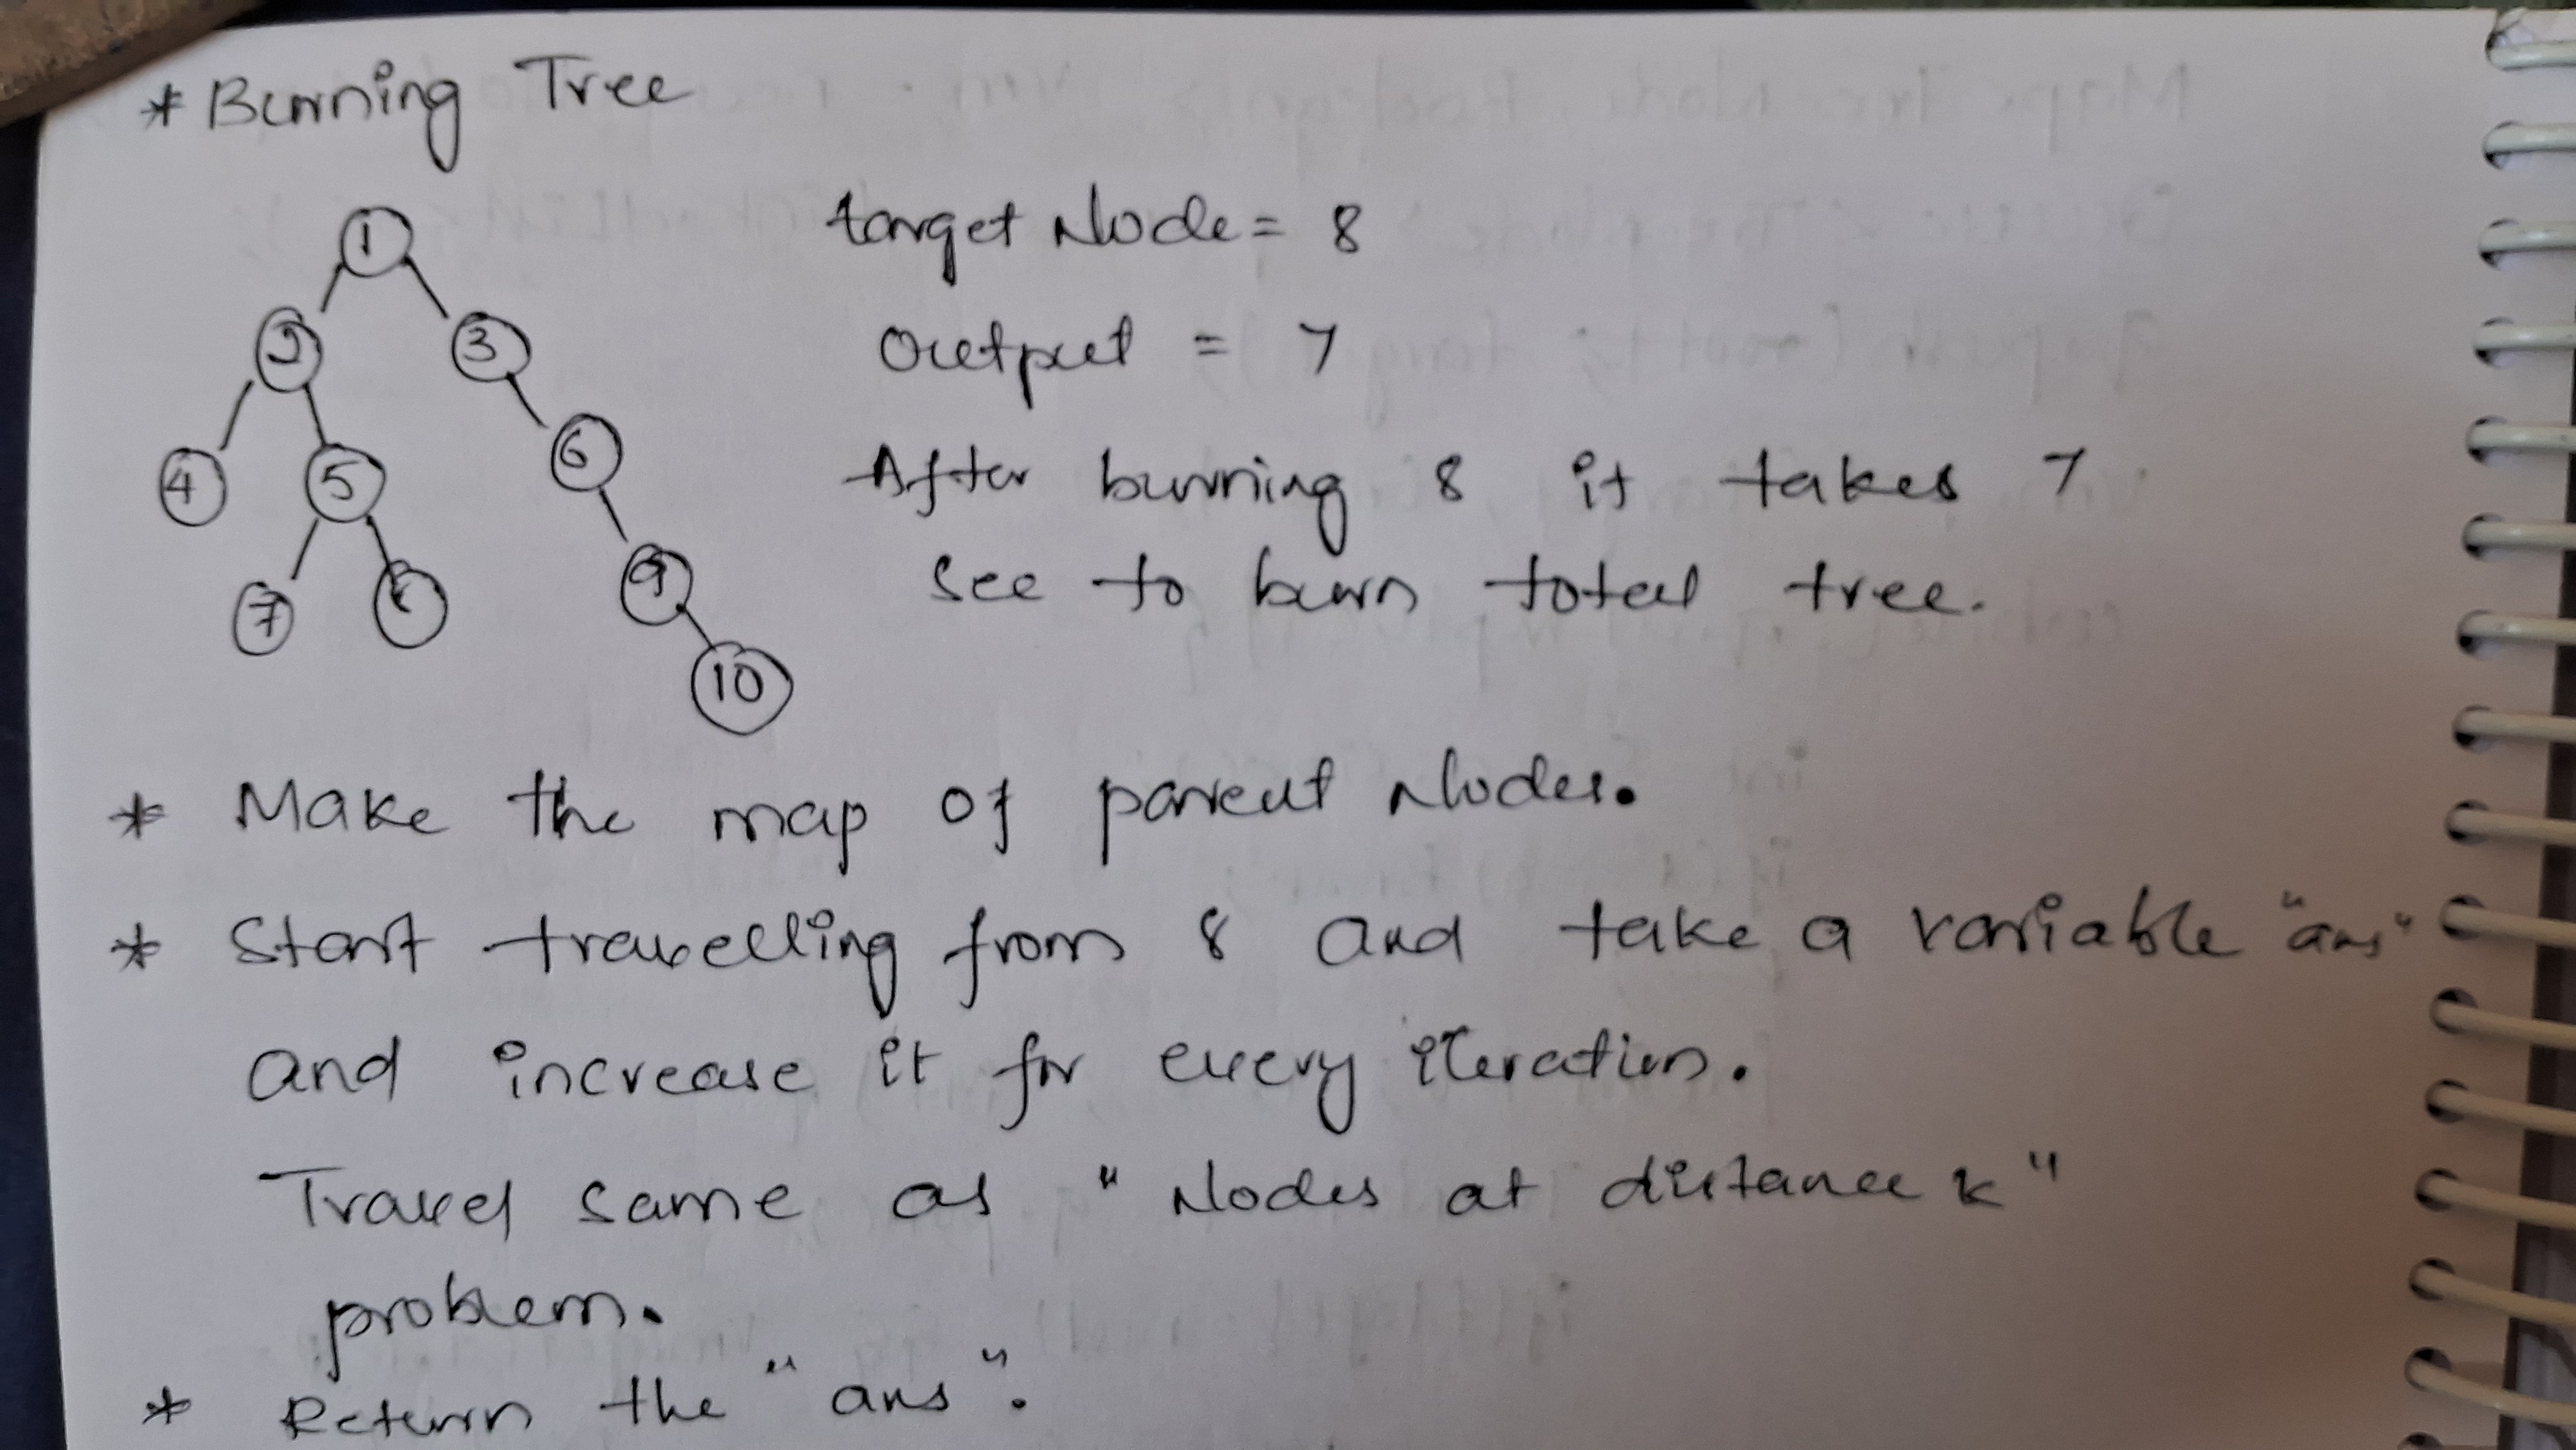 * Burning Tree
target Node = 8
output = 7
After burning 8 it takes 7
sec to burn total tree.
1
3
4
5
6
7
9
10
* Make the map of parent Nodes.
* Start traveling from 8 and take a variable "ans"
and increase it for every iteration.
Travel same as "Nodes at distance k"
problem.
* Return the "ans".